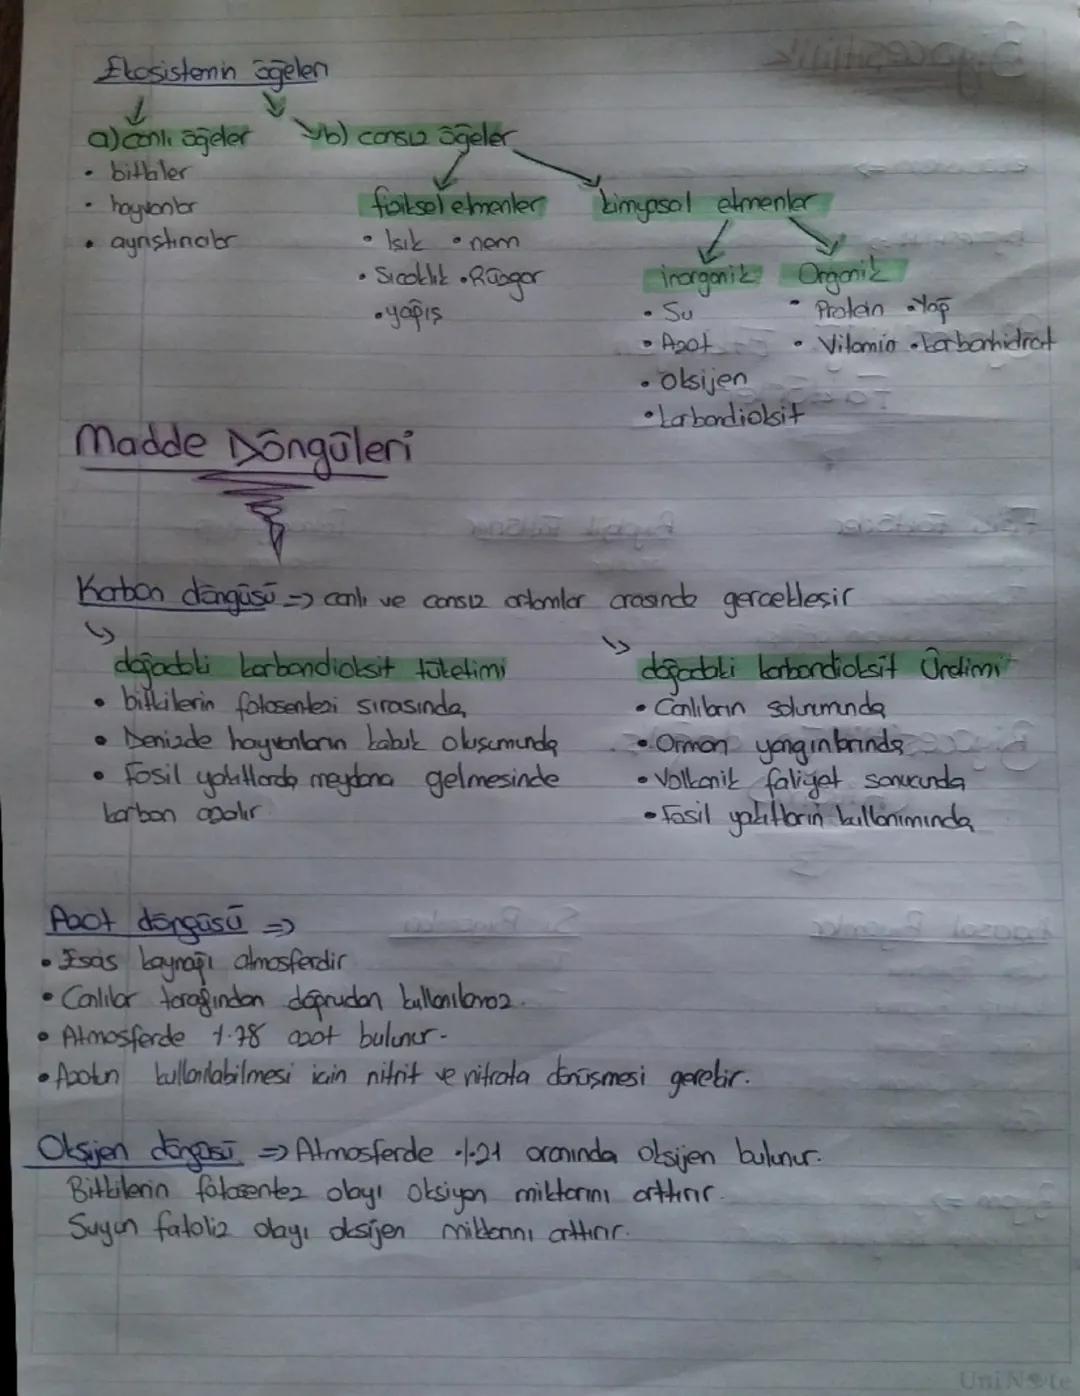 Ekosistemin öğeleri
a) canlı öğeler
b) cansız öğeler
• bitkiler
• hayvanlar
• ayrıştırıcılar
fiziksel etmenler
kimyasal etmenler
• Işık • nem
• Sıcaklık • Rüzgar
• yağış
inorganik
Organik
• Su
• Azot
• Oksijen
• karbondioksit
• Protein • Yağ
• Vitamin • karbonhidrat
Madde Döngüleri
Karbon döngüsü => canlı ve cansız ortamlar arasında gerçekleşir
doğadaki karbondioksit tüketimi
• bitkilerin fotosentezi sırasında
• Denizde hayvanların kabuk oluşumunda
• Fosil yakıtlarda meydana gelmesinde
karbon azalır
doğadaki karbondioksit Üretimi
• Canlıların solunumunda
• Orman yangınlarında
• Volkanik faliyet sonucunda
• Fosil yakıtların kullanımında
Azot döngüsü =>
• Esas kaynağı atmosferdir
• Canlılar tarafından doğrudan kullanılamaz.
• Atmosferde %78 azot bulunur.
• Azotun kullanılabilmesi için nitrit ve nitrata dönüşmesi gerekir.
Oksijen döngüsü => Atmosferde %21 oranında oksijen bulunur.
Bitkilerin fotosentez olayı oksiyen miktarını arttırır.
Suyun fotoliz olayı oksijen miktarını arttırır.
UniNote